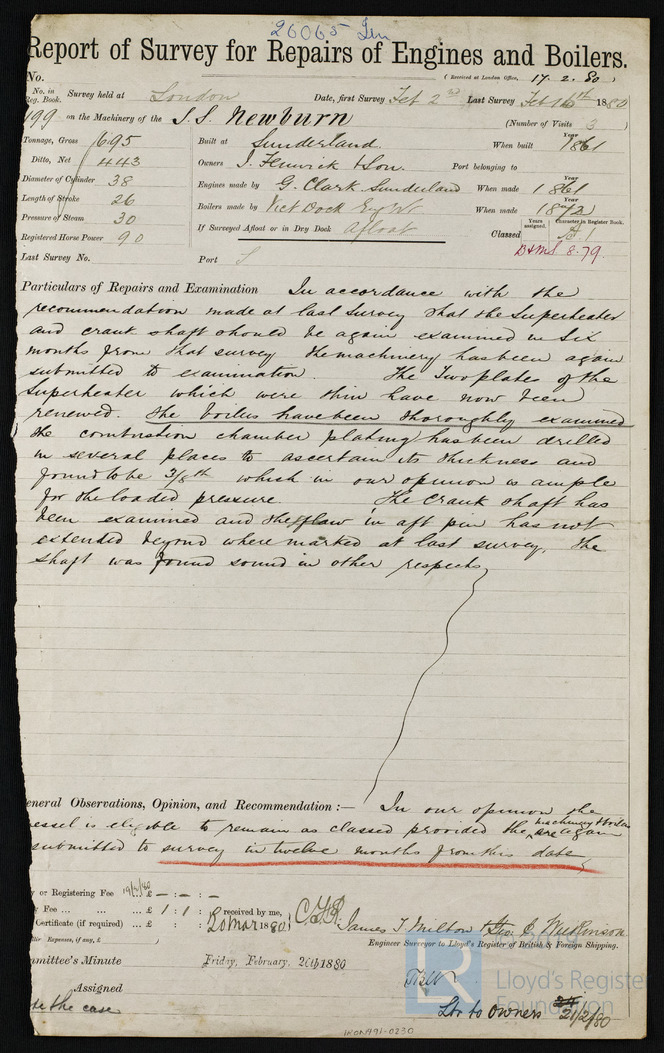 26065 Iron
Report of Survey for Repairs of Engines and Boilers.
No. (Received at London Office, 17.2.80)
No. in Reg. Book. Survey held at London Date, first Survey Feb 2nd Last Survey Feb 16th 1880
199 on the Machinery of the S.S. Newburn (Number of Visits 3)
Tonnage, Gross 695 Built at Sunderland. When built Year 1861
Ditto, Net 443 Owners J. Fenwick & Son. Port belonging to
Diameter of Cylinder 38 Engines made by G. Clark Sunderland When made Year 1861
Length of Stroke 26 Boilers made by Vict Dock Eng Wks When made Year 1872
Pressure of Steam 30
Registered Horse Power 90 If Surveyed Afloat or in Dry Dock Afloat Classed Years assigned. Character in Register Book. A 1
B&MS 8.79.
Last Survey No. Port
Particulars of Repairs and Examination In accordance with the
recommendation made at last survey that the Superheater
and crank shaft should be again examined in six
months from that survey the machinery has been again
submitted to examination. The two plates of the
Superheater which were thin have now been
renewed. The boilers have been thoroughly examined
the combustion chamber plating has been drilled
in several places to ascertain its thickness and
found to be 3/8th which in our opinion is ample
for the loaded pressure. The crank shaft has
been examined and the flaw in aft pin has not
extended beyond where marked at last survey. The
shaft was found sound in other respects
General Observations, Opinion, and Recommendation :— In our opinion the
vessel is eligible to remain as classed provided the machinery & boilers are again
submitted to survey in twelve months from this date,
y or Registering Fee 19/2/80 £ – : – : –
y Fee ... ... ... £ 1 : 1 : received by me,
Certificate (if required) ... £ : : 20 Mar 1880
(Travelling Expenses, if any, £ )
James T Milton Geo. C Wilkinson
Engineer Surveyor to Lloyd's Register of British & Foreign Shipping.
Committee's Minute Friday, February. 20th 1880
Assigned
note the case
Ltr to Owners 21/2/80
IRON991-0230
Lloyd's Register
Foundation